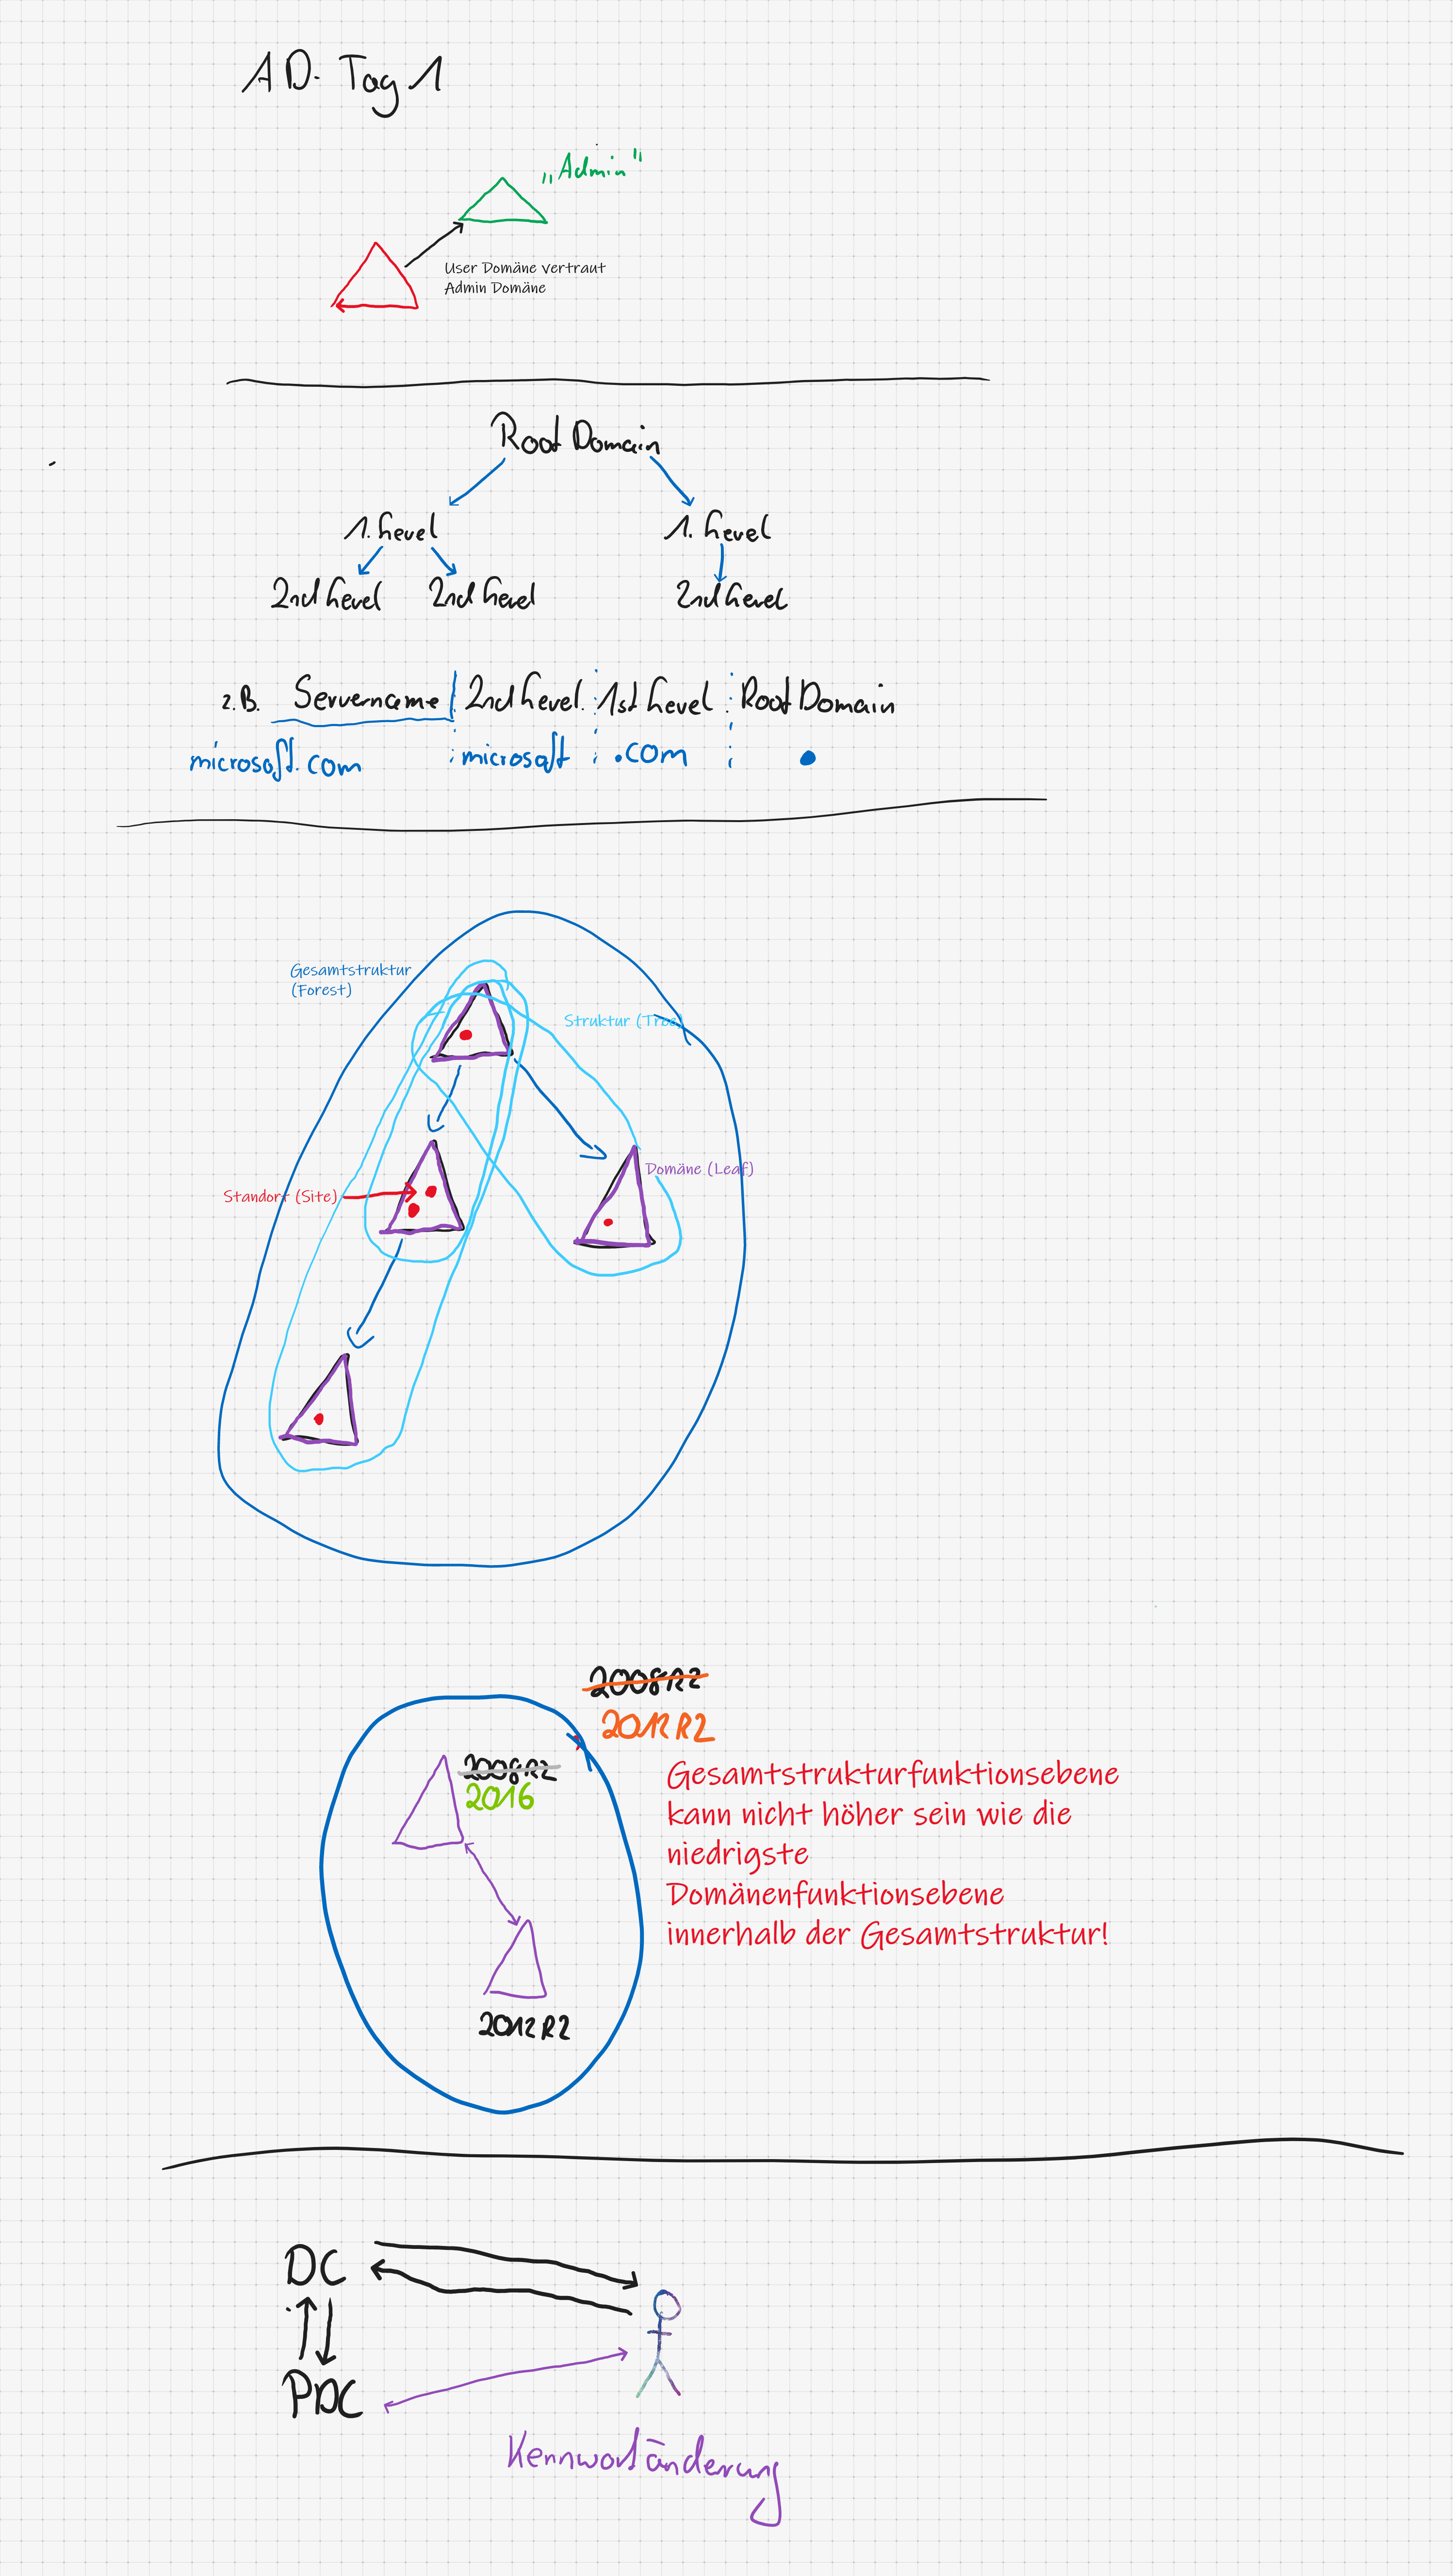 AD- Tag 1
„Admin"
User Domäne vertraut
Admin Domäne
Root Domain
1. Level 1. Level
2nd Level 2nd Level 2nd Level
z.B. Servername 2nd Level. 1st Level. Root Domain
microsoft.com microsoft .com .
Gesamtstruktur
(Forest)
Struktur (Tree)
Domäne (Leaf)
Standort (Site)
2008R2
2012 R2
2008R2
2016
Gesamtstrukturfunktionsebene
kann nicht höher sein wie die
niedrigste
Domänenfunktionsebene
innerhalb der Gesamtstruktur!
2012 R2
DC
PDC
Kennwortänderung